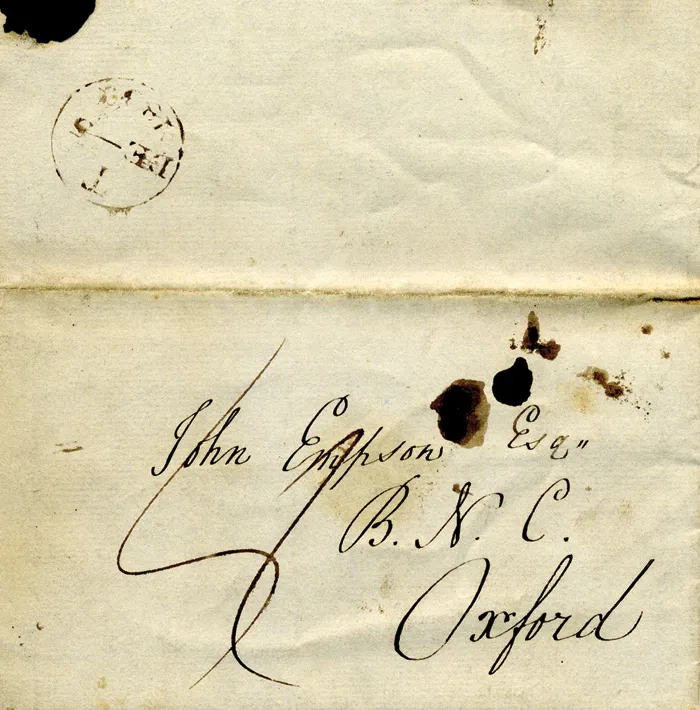 John Empson Esq"
B. N. C.
Oxford